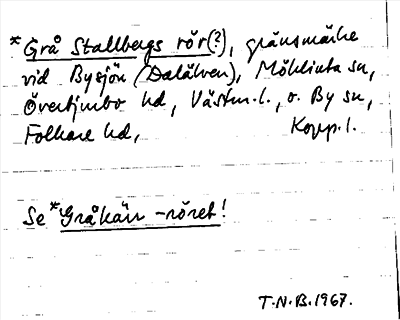 *Grå Stallbergs rör(?), gränsmärke
vid Bysjön (Dalälven), Möklinta sn,
Övertjurbo hd, Västm.l., o. By sn,
Folkare hd, Kopp.l.
Se *Gråkarr -röret!
T.N.B.1967.